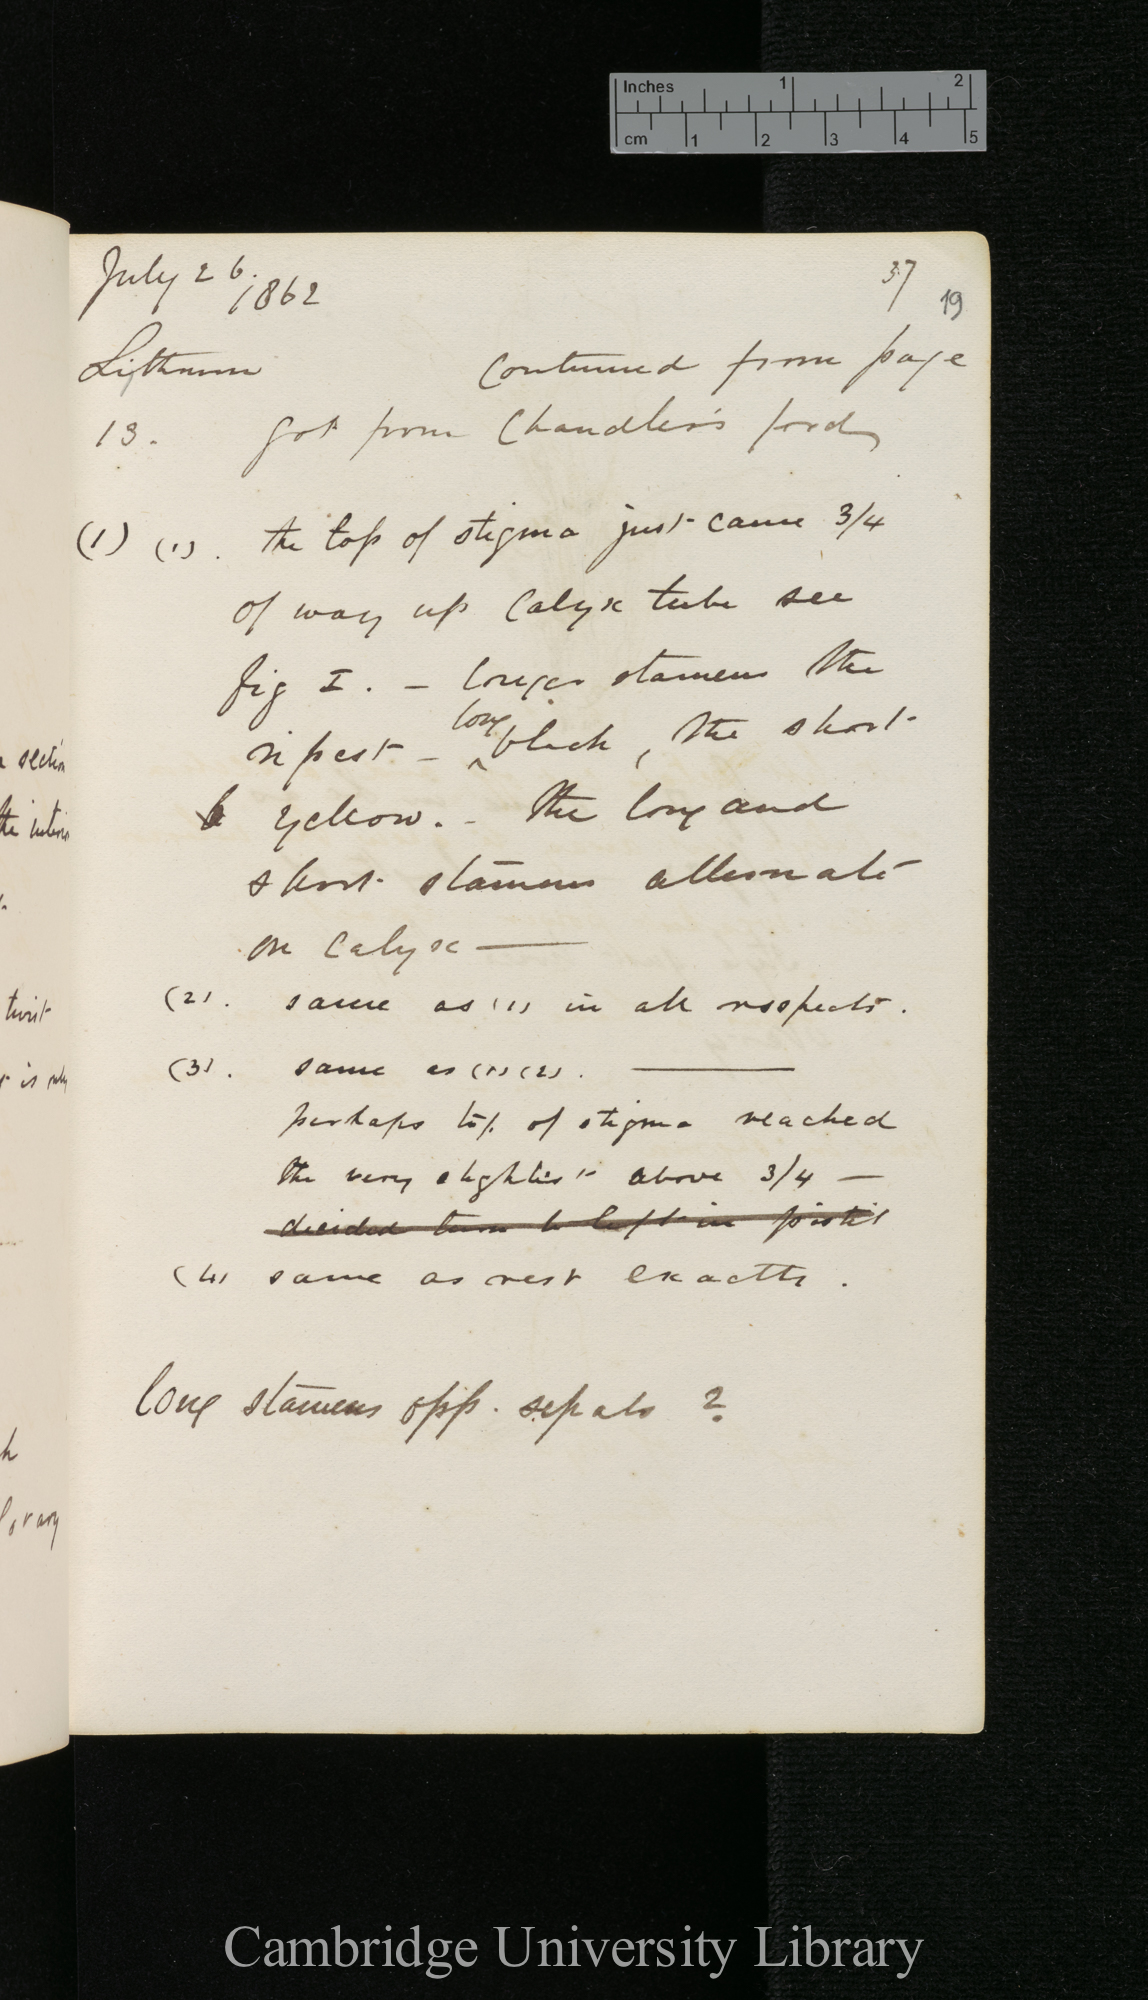 Inches 1 2
cm 1 2 3 4 5
July 26. 37
1862 19
Lythrum continued from page
13. got from Chandler's ford
(1) (1). the top of stigma just came 3/4
of way up calyx tube see
fig I. – longer stamens the
long
ripest – ^ black, the short
yellow. – the long and
short stamens alternate
on calyx —
(2). same as (1) in all respects.
(3). same as (1) (2). —
perhaps top of stigma reached
the very slightest above 3/4 —
decided turn to left in pistil
(4) same as rest exactly.
long stamens opp. sepals ?
section
the interior
twist
is only
Cambridge University Library